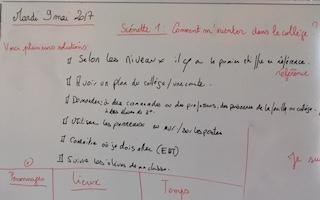 Mardi 9 mai 2017
Scénette 1 : Comment m'orienter dans le collège ?
Voici plusieurs solutions
Selon les niveaux il y a le panneau et en référence.
référence
Avoir un plan du collège / une carte.
Demander à des camarades ou des professeurs, des personnes de la famille au collège.
à des élèves de 3e
Utiliser les panneaux au mur / sur les portes
Connaître où je dois aller (EDT)
Suivre les élèves de ma classe.
Je su
Personnages
Lieux
Temps